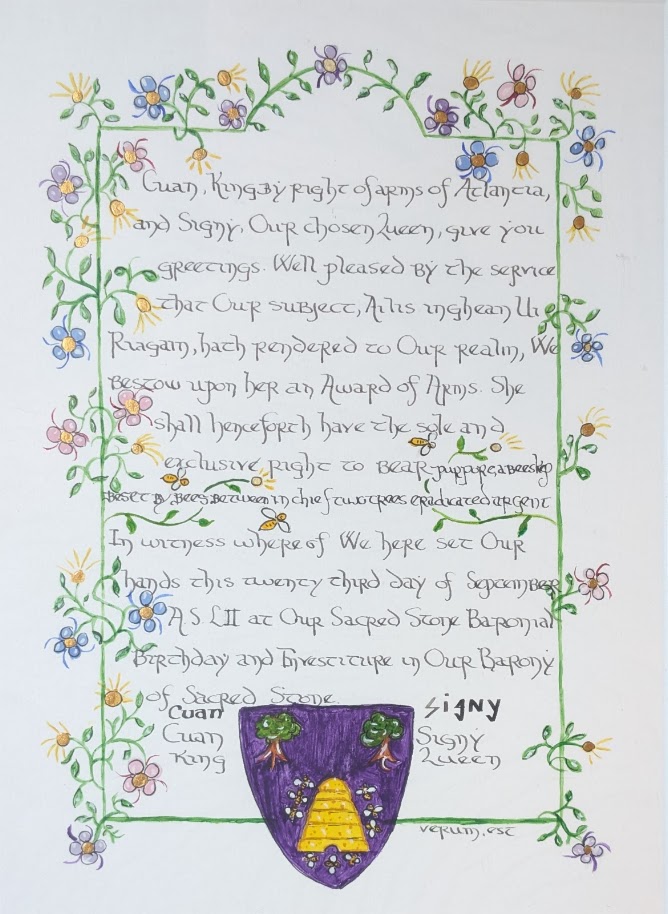 Cuan, King By right of arms of Atlantia,
and Signy, Our chosen Queen, give you
greetings. Well pleased By the service
that Our subject, Ailis inghean Ui
Riagain, hath rendered to Our realm, We
Bestow upon her an Award of Arms. She
shall henceforth have the sole and
exclusive right to Bear purpure, a Beeskep
Beset By Bees Between in chief two trees eradicated argent
In witness whereof We here set Our
hands this twenty third day of September
A S LII at Our Sacred Stone Baronial
Birthday and Investiture in Our Barony
of Sacred Stone.
Cuan Signy
Cuan Signy
King Queen
verum.est